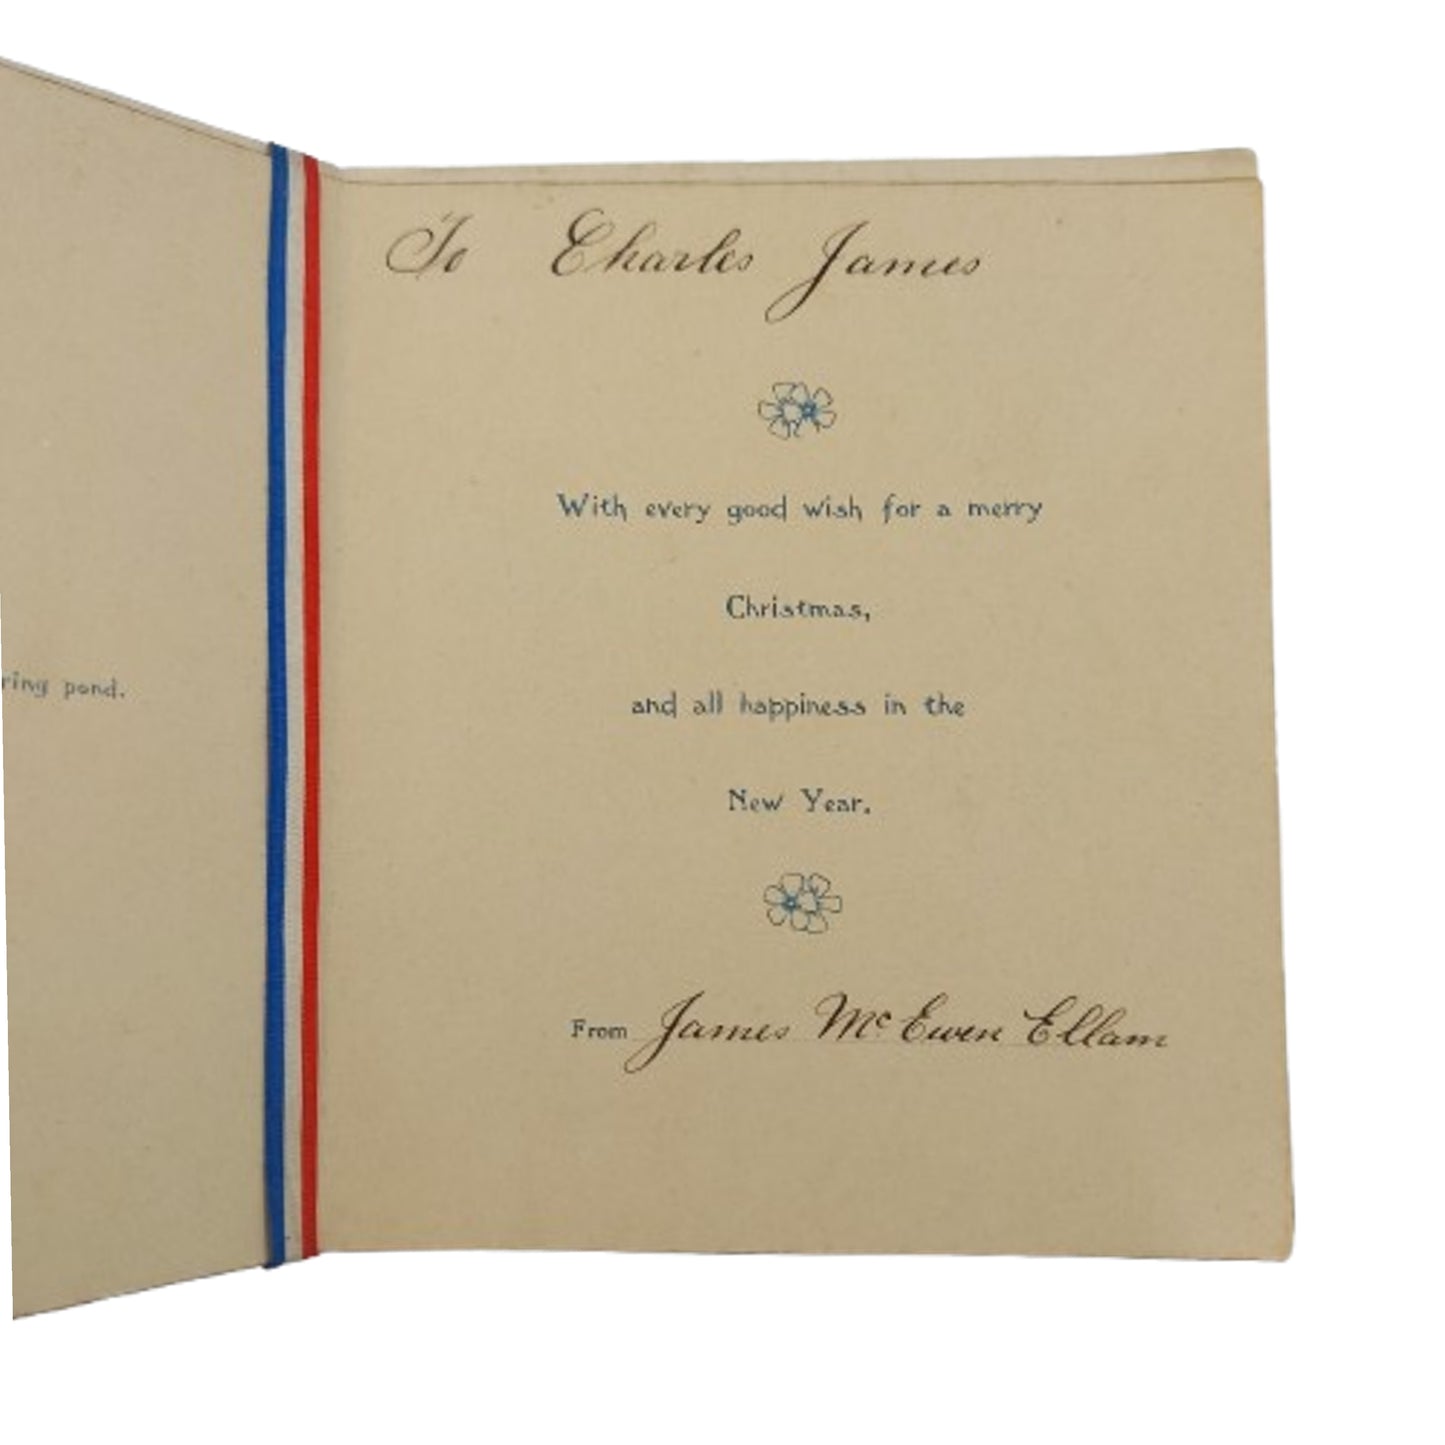 pond.
To Charles James
With every good wish for a merry
Christmas,
and all happiness in the
New Year.
From James McEwen Ellam